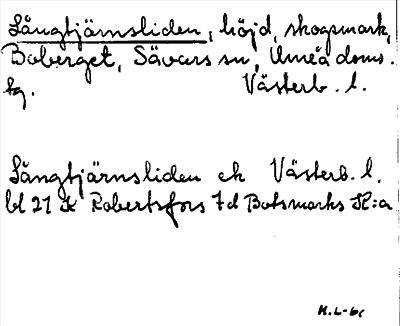 Långtjärnsliden, höjd, skogsmark,
Boberget, Sävars sn, Umeå doms.
hg. Västerb. l.
Långtjärnsliden ek Västerb. l.
bl 21 K Robertsfors 7d Botsmarks K:a